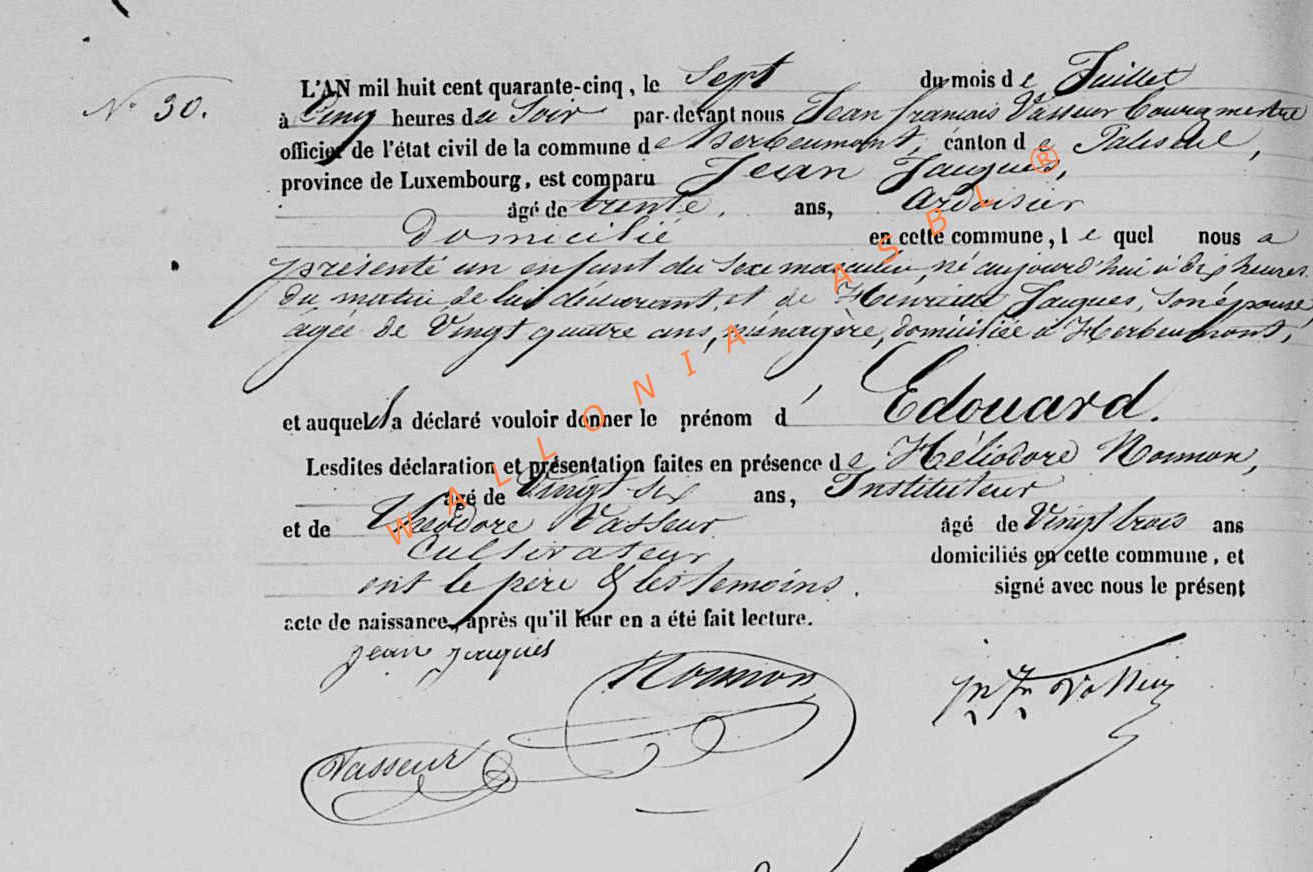 N° 30.
L'AN mil huit cent quarante-cinq, le Sept du mois de Juillet
à Cinq heures du Soir par-devant nous Jean françois Vasseur Bourgmestre
officier de l'état civil de la commune de herbeumont, canton de Paliseul,
province de Luxembourg, est comparu Jean Jacques,
âgé de trente. ans, ardoisier
domicilié en cette commune, lequel nous a
présenté un enfant du sexe masculin né aujourd'hui à dix heures
du matin de lui déclarant, et de Henriette Jacques, son épouse
âgée de Vingt quatre ans, ménagère, domiciliée à Herbeumont,
et auquel il a déclaré vouloir donner le prénom d'Edouard.
Lesdites déclaration et présentation faites en présence de Héliodore Noumon,
âgé de Vingt six ans, Instituteur
et de Théodore Vasseur âgé de Vingt trois ans
Cultivateur domiciliés en cette commune, et
ont le père & les temoins. signé avec nous le présent
acte de naissance, après qu'il leur en a été fait lecture.
jean jacques
Noumon
Vasseur
WALLONIA ASBL ®